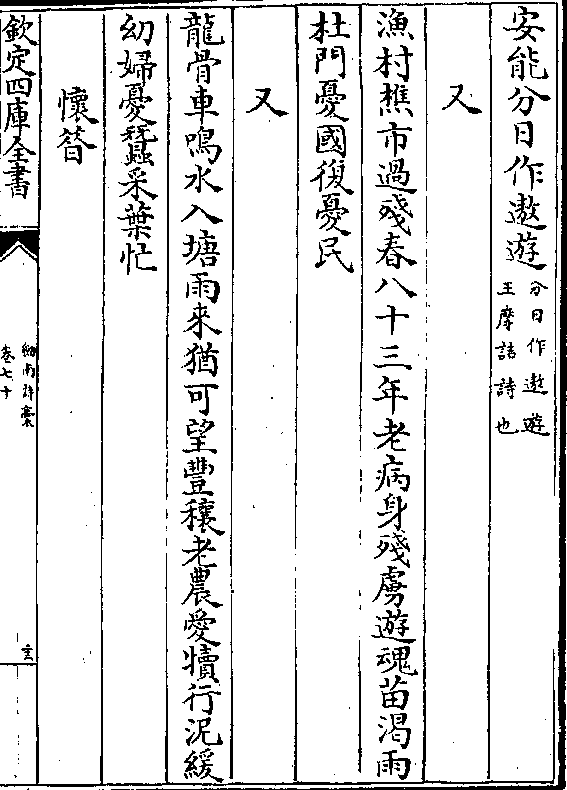 安能分日作遨遊分日作遨遊王摩詰詩也
又
漁村樵市過殘春八十三年老病身殘虜遊魂苗渴雨
杜門憂國復憂民
又
龍骨車鳴水入塘雨來猶可望豐穰老農愛犢行泥緩
幼婦憂蠶采葉忙
懷昝
欽定四庫全書
劍南詩稾
卷七十